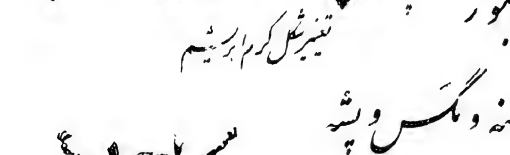 تغییر شکل کرم ابریشم
و مگس و پشه